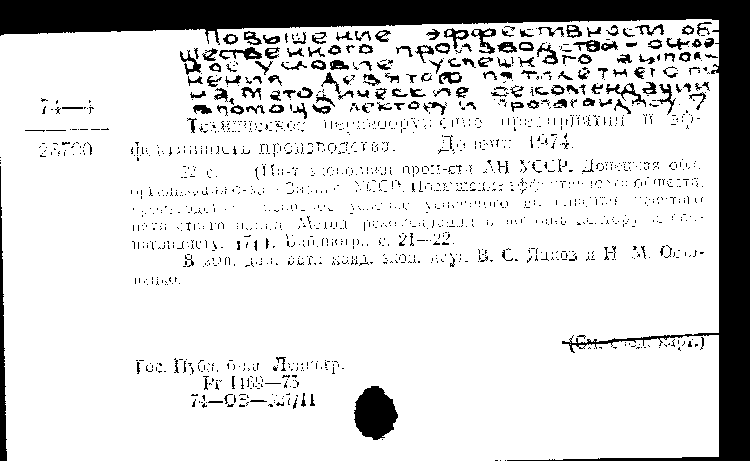 Повышение эффективности об-
щественного производства - основ-
ное условие успешного выпол-
нения девятого пятилетнего пла-
на. Методические рекомендации
в помощь лектору и пропагандисту. 7
74—4
Техническое перевооружение предприятий и эф-
28700 фективность производства. Донецк 1974.
22 с. (Ин-т экономики пром-сти АН УССР. Донецкая обл.
организация о-ва «Знание» УССР. Повышение эффективности обществ.
производства основное условие успешного выполнения девятого
пятилетнего плана. Метод. рекомендации в помощь лектору и про-
пагандисту. Библиогр.: с. 21—22.
В вып. дан. авт.: канд. экон. наук В. С. и Н. М.
(См. след. карт.)
Гос. Публ. б-ка Ленингр.
Рг 1168—75
74—ОВ—327/11